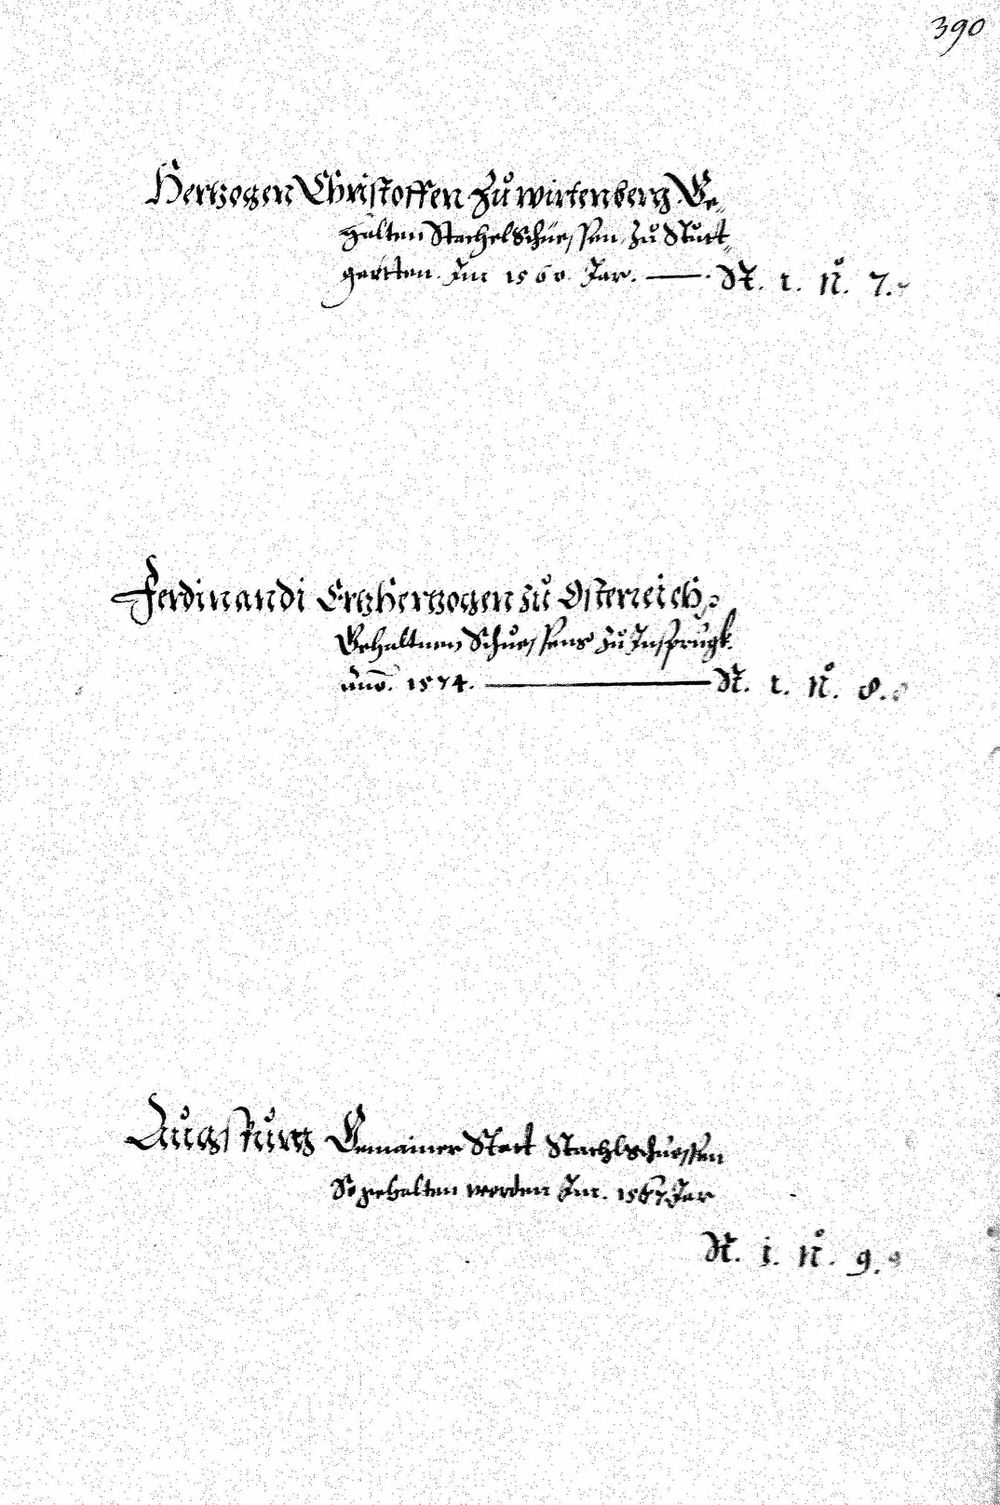 390
Hertzogen Christoffen Zů wirtenberg Ge-
halten Stachelschüessen, zů Stutt-
gartten. Im 1560. Jar. St. 1. No. 7.
Ferdinandi Ertzhertzogen zů Osterreich
Gehaltnen Schuessens zů Insprugk.
Anno. 1574. St. 1. No. 8.
Augspurg Gemainer Statt Stachlschuessen
So gehalten worden Im. 1567 Jar
St. i. No. 9.